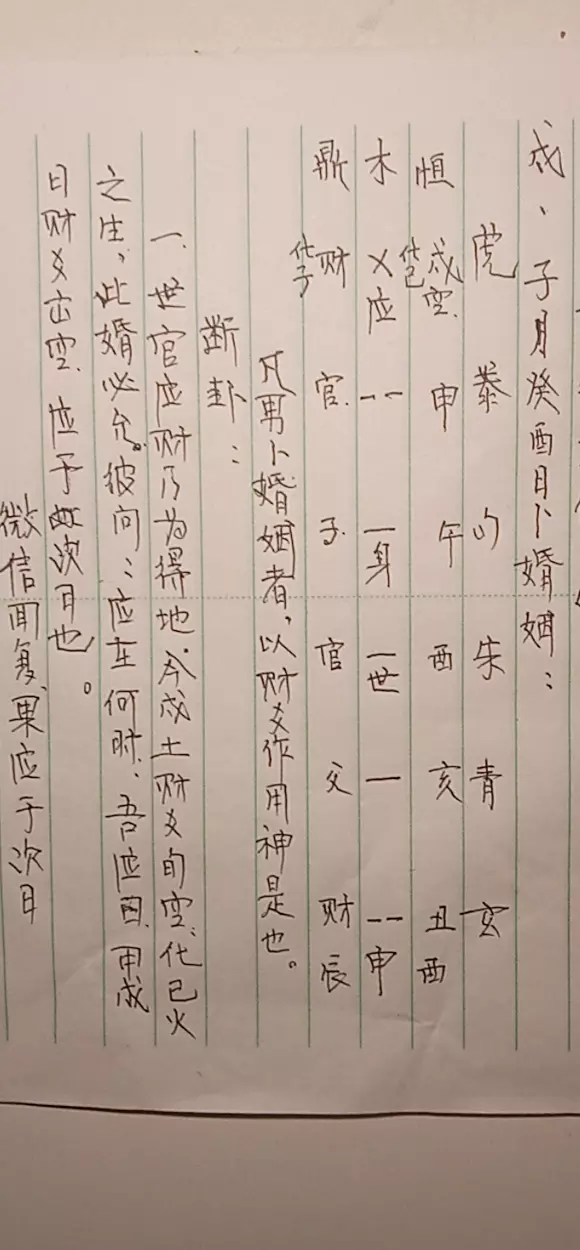 戌、子月癸酉日卜婚姻：
虎 㐬 灼 朱 青 玄
恒 戌空化巳 申 午 酉 亥 丑 酉
木 乂应 -- 一身 一世 一 -- 申
鼎 财化子 官 子 官 父 财 辰
凡男卜婚姻者，以财爻作用神是也。
断卦：
一、世官应财乃为得地，今戌土财爻旬空、化巳火
之生，此婚必允。彼问：应在何时，吾应曰，甲戌
日财爻出空，应于次月也。
微信回复、果应于次月